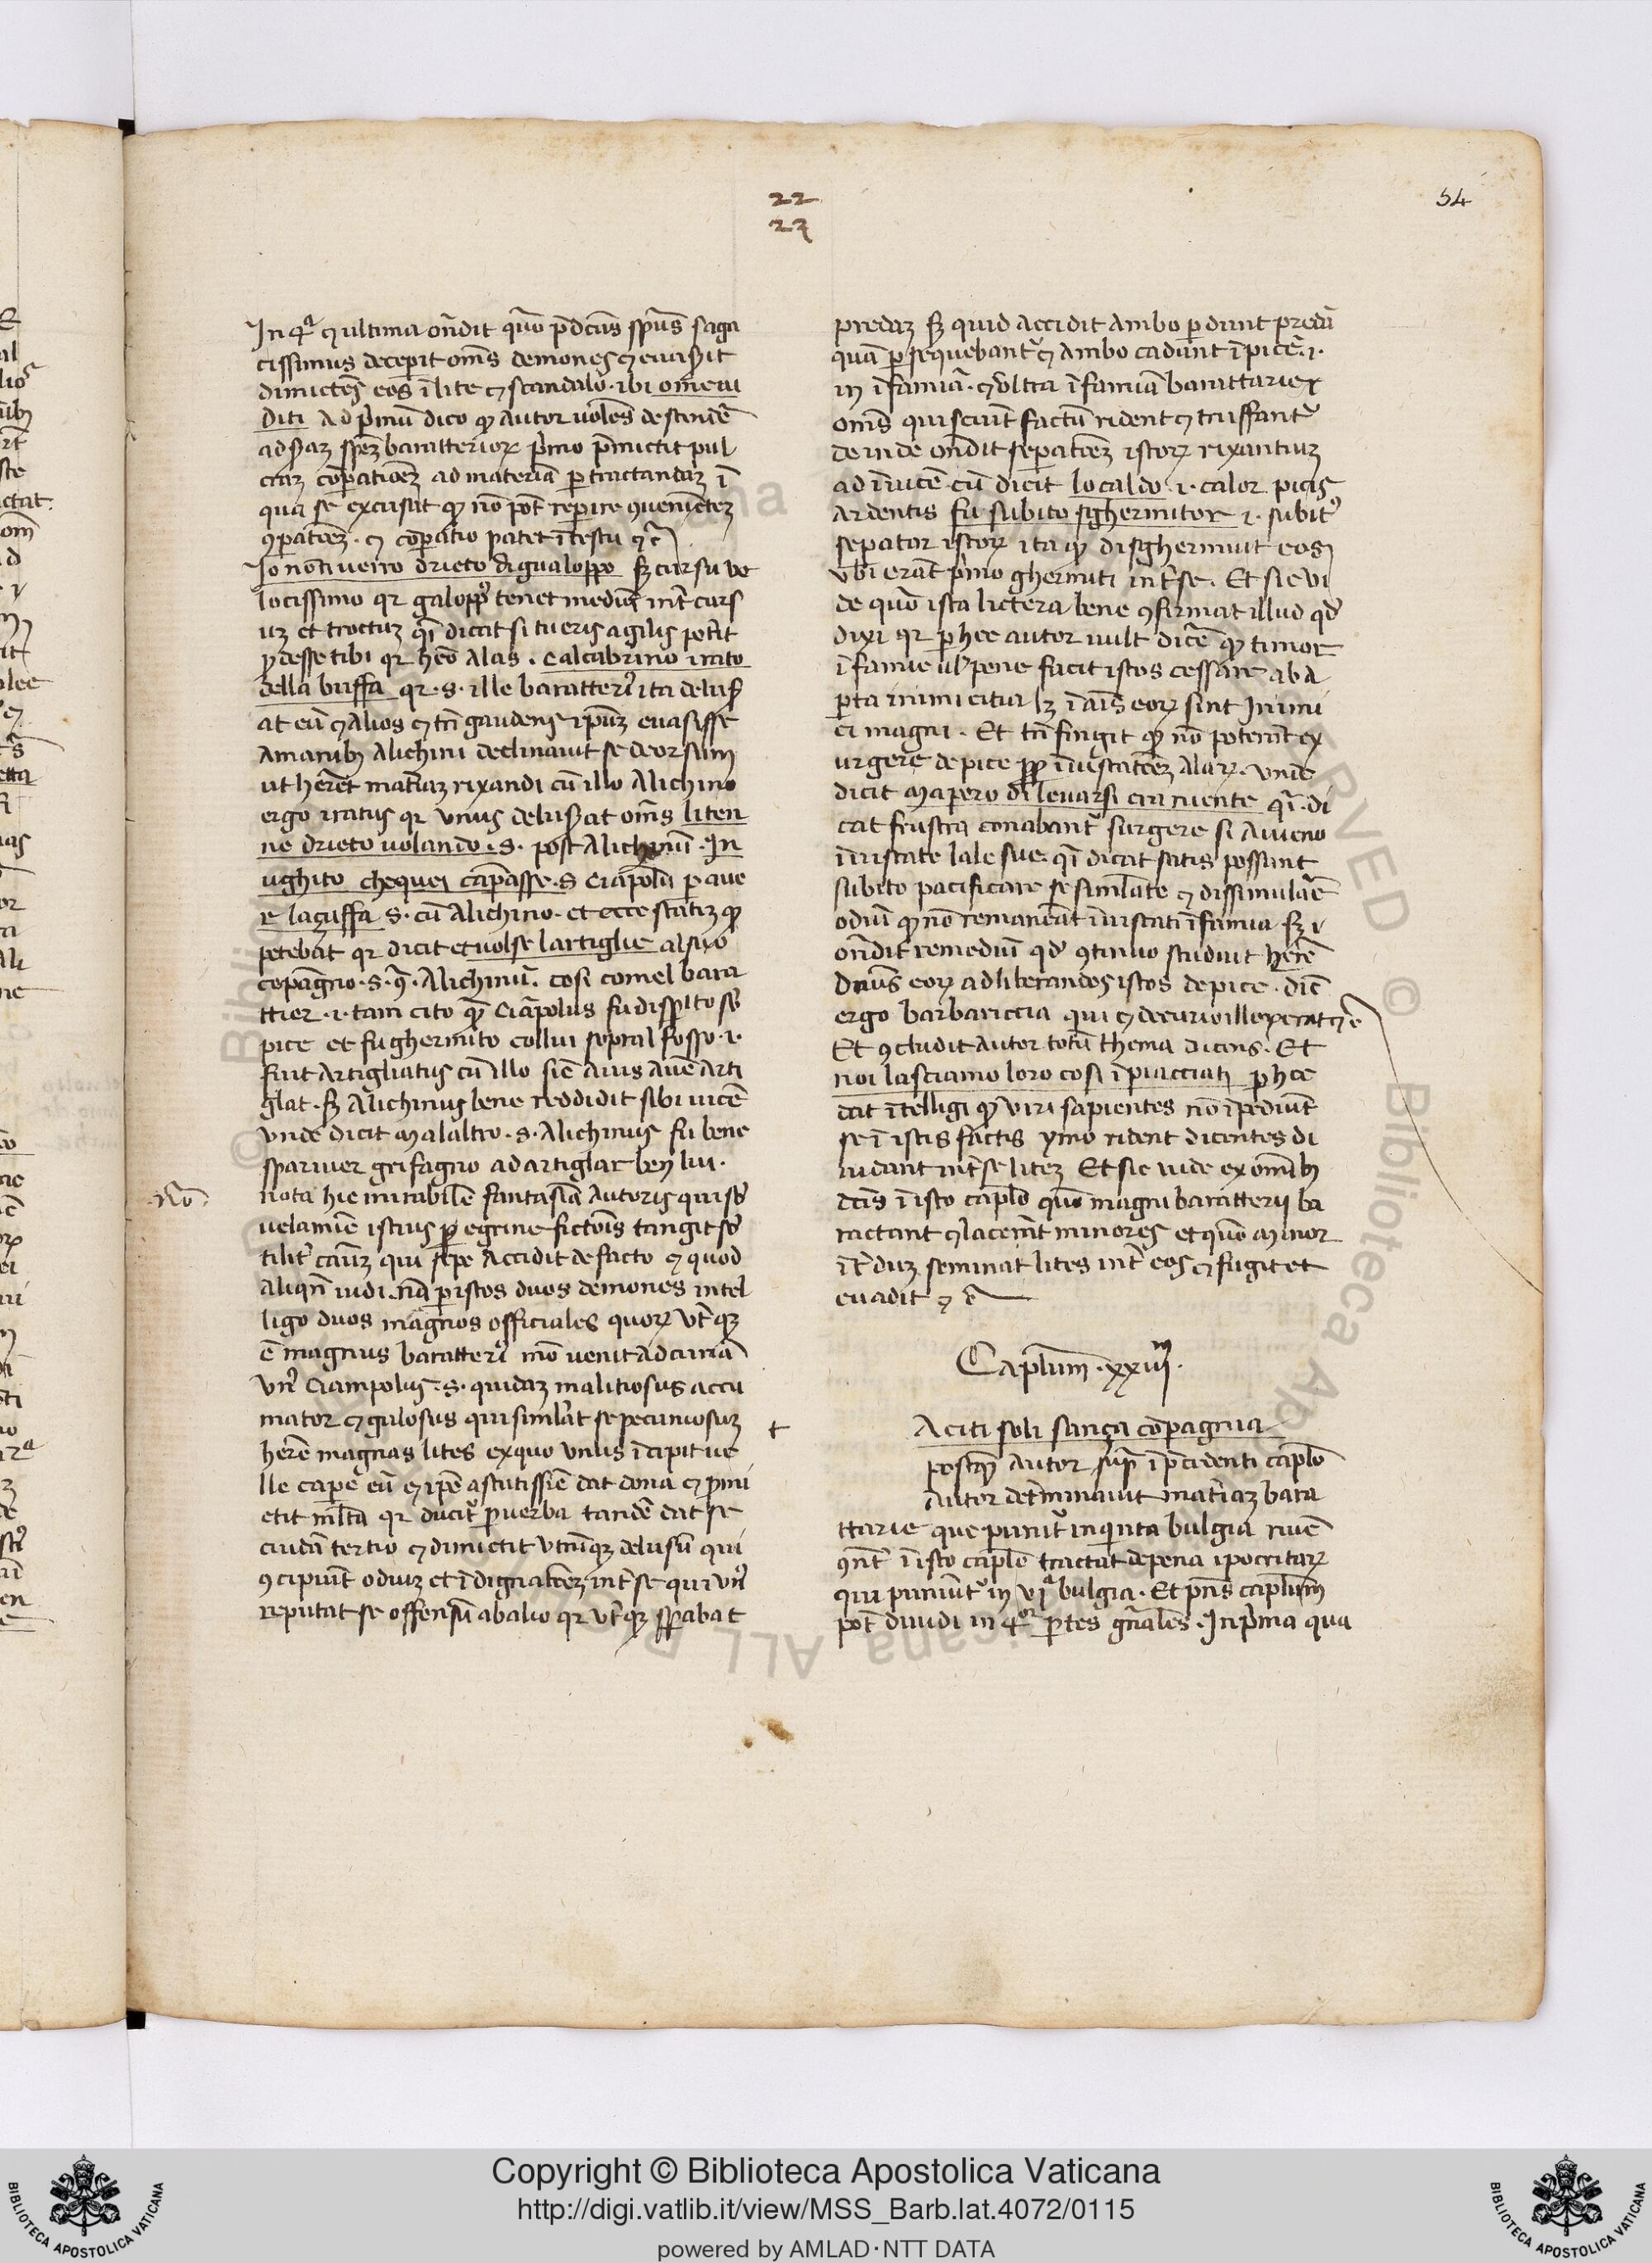 22
23
54
In 4ª ⁊ ultima oñdit quō p̄dcūs spūs saga
cissimus decepit oms̄ demones ⁊ euasit
dimictēs eos ī lite ⁊ scandalo . ibi omei ui
diti Ad p̄mū dico ꝙ autor uolēs descendē
ad spēz baratterioꝝ p̄mo p̄mictit pul
craz cōpatiōez ad materiā ꝑtractandaz ī
qua se excusat ꝙ nō pōt reperire ꝯuenietez
ꝯpatōez . ⁊ cōpatio patet ī testu ⁊c̄
Io non ti uerro drieto di gualoppo sꝫ cursu ue
locissimo qr galopp̄ tenet mediuꝫ int̄ curs
uꝫ et troctuꝫ q̄i dicat si tu eris agilis pot̄it
ꝓdesse tibi qr hēo alas . Calcabrino irato
della buffa qr . s . ille baratteri᷒ ita delus
at eū ⁊ alios ⁊ tn̄ gaudens ip̄uꝫ euasisse
a manibꝫ Alichini declinauit se deorsum
ut her̄et mat̄iaꝫ rixandi cū illo Alichino
ergo iratus qr unus deluserat oms̄ li ten
ne drieto uolando . s . post Alichinū . In
ughito che quei campasse . s Ciāpolū p aue
re la çuffa s . cū Alichino . et ecce statiꝫ ꝙ
petebat qr dicit et uolse l artiglie al suo
copāgno . s . ꝯ̄ . Alichinū . cosi comel bara
ttier . i . tam cito ꝙ̄ Ciāpolus fu disp̄ito s᷒
pice et fu ghermito collui sopral fosso . i .
fuit artigliatus cū illo sic̄ auis auē arti
glat . sꝫ Alichinus bene reddidit sibi uicē
unde dicit ma laltro . s . Alichinus fu bene
sparuier grifagno ad artiglar ben lui .
.No.
nota hic mirabilē fantasiā autoris qui s᷒
uelamine istius peregrine fictiōis tangit s᷒
tilit̄ cautꝫ qui sepe accidit de facto ⁊ quod
aliqn̄ uidi . nā ꝑ istos duos demones intel
ligo duos magnos officiales quoꝝ ut̄qꝫ
ē magnus baratteri᷒ mō uenit ad curiā
un᷒ Ciampolus . s . quidaꝫ malitiosus accu
mator ⁊ gulosus qui simlat se pecuniosuꝫ
herē magnas lites ex quo unus īcipit ue
lle capē eū ⁊ ip̄e astutissie dat dona ⁊ ꝓmi
ctit mlta qr ducit᷒ ꝑ uerba tandē dat se
cuidā tertio ⁊ dimictit utrūqꝫ delusū qui
ꝯcipiūt odiuꝫ et ī dignatōeꝫ int̄ se qui un᷒
reputat se offensū ab alio qr ut̄qꝫ spabat
predaꝫ sꝫ quid accidit ambo ꝑdunt predā
quā ꝑsequebant᷒ ⁊ ambo cadunt ī picē . i .
in ī famiā . ⁊ ultra ī famiā barattarie
oms̄ qui sciūt factū rident ⁊ truffant᷒
deinde oñdit sepatōeꝫ istoꝝ rixantiuꝫ
ad īuicē cū dicit lo caldo . i . calor picis
ardentis fu subito sghermitor i . subit᷒
sepator istoꝝ ita ꝙ disghermiuit eos
ubi erāt p̄mo ghermiti int̄ se . Et sic vi
de quō ista lictera bene ꝯfirmat illud qd᷒
dixi qr ꝑ hec autor uult dicē ꝙ timor
ī famie ul pene facit istos cessare ab a
perta inimicitia lꝫ ī aīs eoꝝ sint inimi
ci magni . Et tn̄ fingit ꝙ nō poterāt ex
urgere de pice ꝓp īuiscatōeꝫ alaꝝ . unde
dicit ma pero di leuarsi era niente q̄i . di
cat frustra conabant᷒ surgere si aueno
inuiscate lale sue . q̄i dicat satis possunt
subito pacificare se simlate ⁊ dissimulaē
odiū ꝙ nō remaneāt inuiscati ī famia sꝫ i
oñdit remediū qd᷒ ꝯtinuo studuit herē
dn̄us eoꝝ ad liberandos istos de pice . dic̄
ergo barbariccia qui ⁊ decurio illoꝝ erat ⁊c̄
Et ꝯcludit autor totū thema dicens . Et
noi lasciamo loro cosi ī piacciati ꝑ hec
dat ī telligi ꝙ viri sapientes nō ī pediūt
se ī istis factis ymo rident dicentes di
uidant int̄ se liteꝫ Et sic uide ex omībꝫ
dcīs ī isto capl̄o quō magni baratterij ba
ractant ⁊ lacerāt minores et quō minor
īt̄duꝫ seminat lites int̄ eos ⁊ fugit et
euadit ⁊c̄
Capl̄um . xxiijᵐ .
+
Aciti soli sança cōpagnia
postꝙ̄ autor sup̄ ī p̄cidenti capl̄o
autor det̄minauit mat̄iaꝫ bara
ttarie que punit᷒ in quinta bulgia nūc
ꝯn̄t ī isto capl̄o tractat de pena ipocritaꝝ
qui puniūt᷒ in vjª bulgia . Et p̄ns capl̄um
pōt diuidi in 4ᵒʳ ꝑtes gn̄ales . In p̄ma qua
Copyright © Biblioteca Apostolica Vaticana
http://digi.vatlib.it/view/MSS_Barb.lat.4072/0115
powered by AMLAD·NTT DATA
BIBLIOTECA APOSTOLICA VATICANA
BIBLIOTECA APOSTOLICA VATICANA